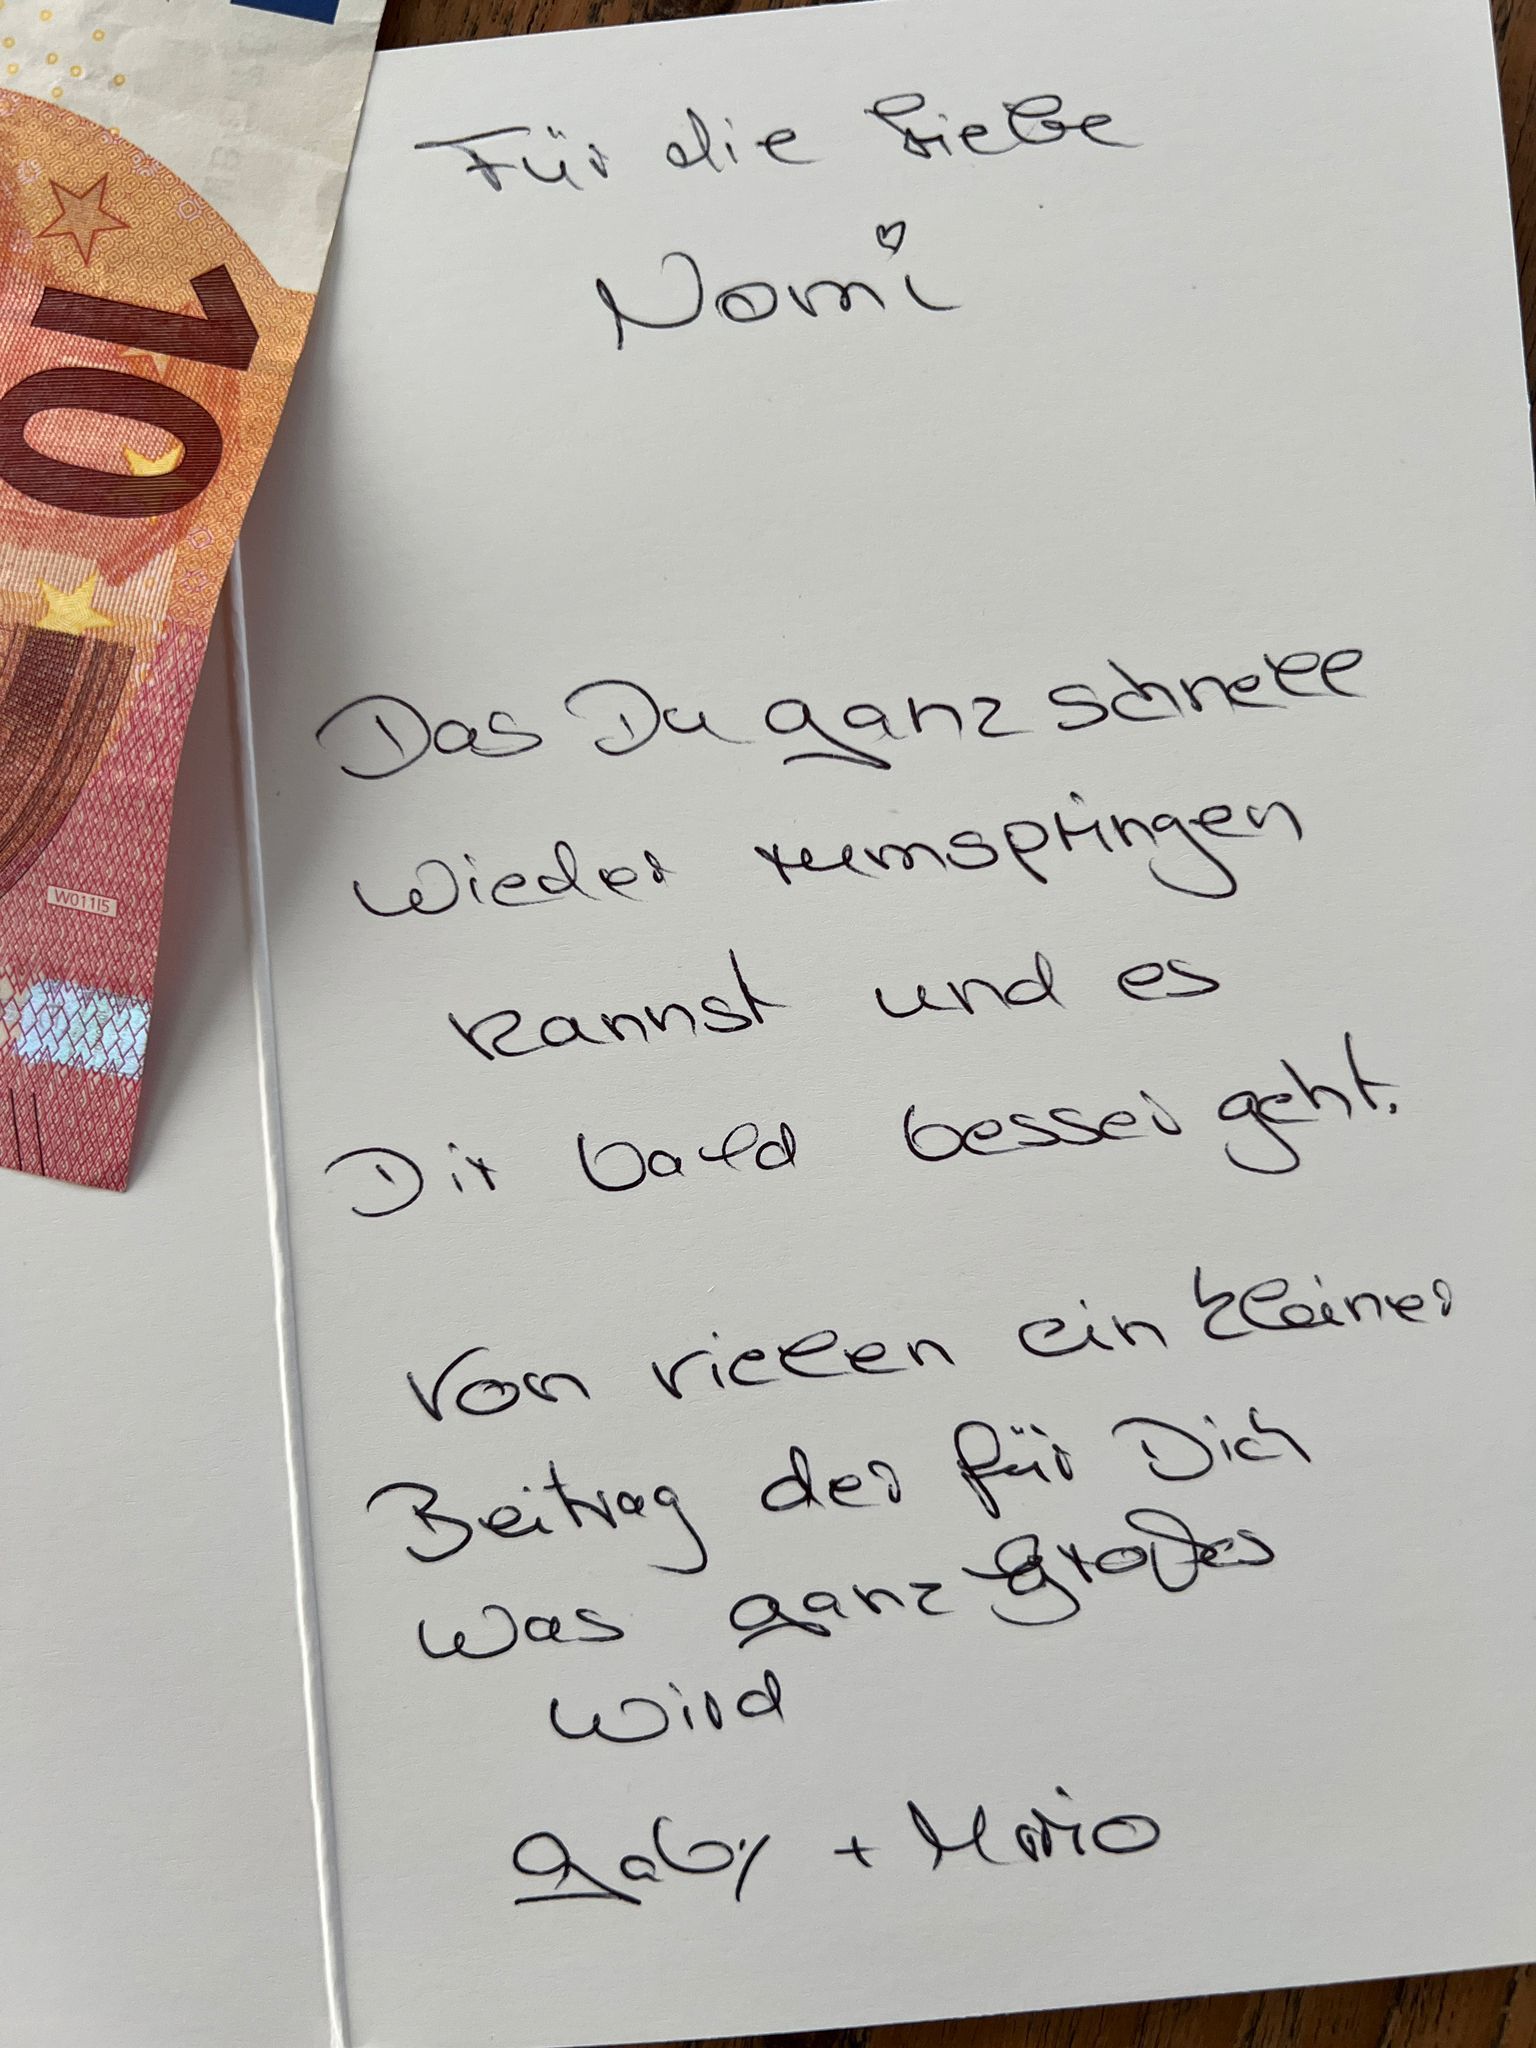 Für die liebe
Nomi
Das Du ganz schnell
wieder rumspringen
kannst und es
Dir bald besser geht.
Von viellen ein kleiner
Beitrag der für Dich
was ganz großes
wird
Gaby + Mario
10
W011I5